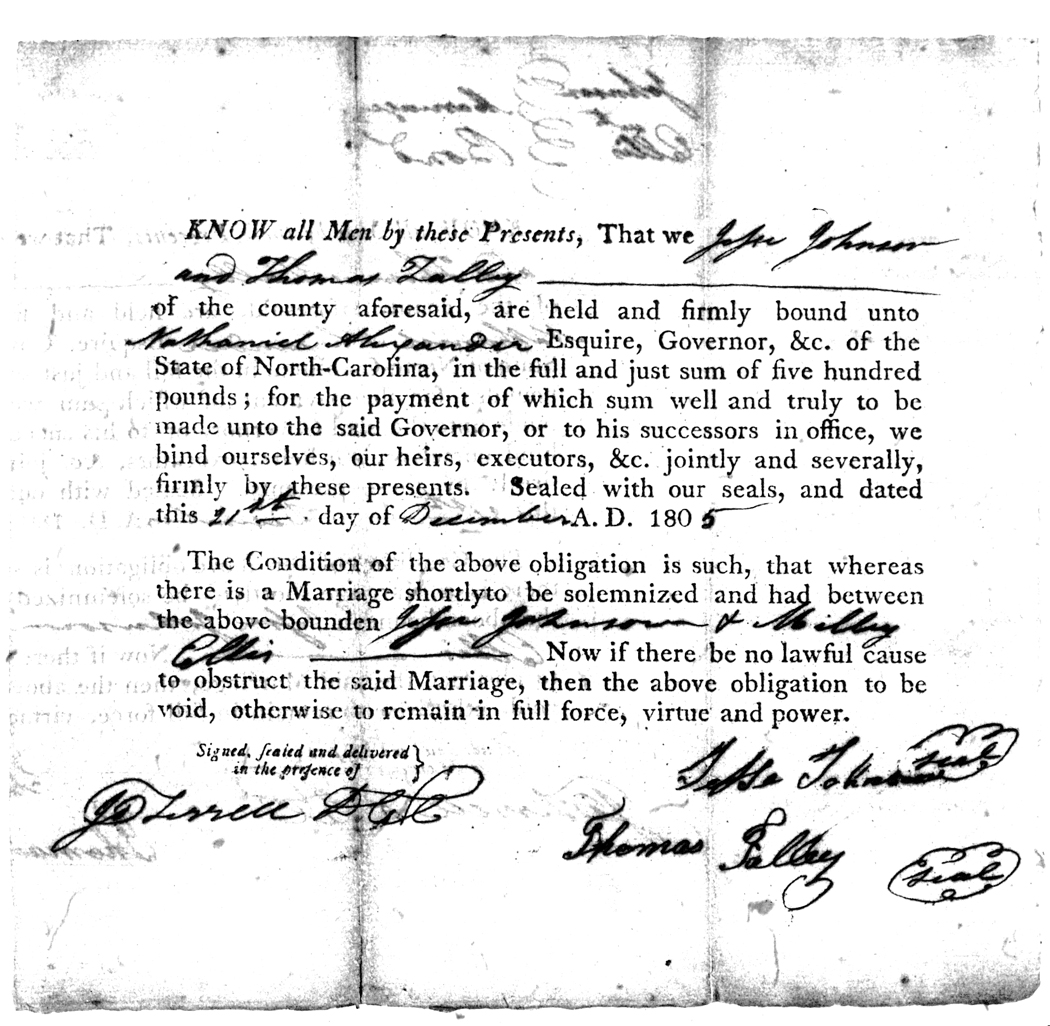 KNOW all Men by these Presents, That we Jesse Johnson
and Thomas Talley
of the county aforesaid, are held and firmly bound unto
Nathaniel Alexander Esquire, Governor, &c. of the
State of North-Carolina, in the full and just sum of five hundred
pounds; for the payment of which sum well and truly to be
made unto the said Governor, or to his successors in office, we
bind ourselves, our heirs, executors, &c. jointly and severally,
firmly by these presents. Sealed with our seals, and dated
this 21st day of December A. D. 1805
The Condition of the above obligation is such, that whereas
there is a Marriage shortly to be solemnized and had between
the above bounden Jesse Johnson & Milley
Ellis Now if there be no lawful cause
to obstruct the said Marriage, then the above obligation to be
void, otherwise to remain in full force, virtue and power.
Signed, sealed and delivered
in the presence of
Jesse Johnson seal
Terrell D C C
Thomas Talley seal